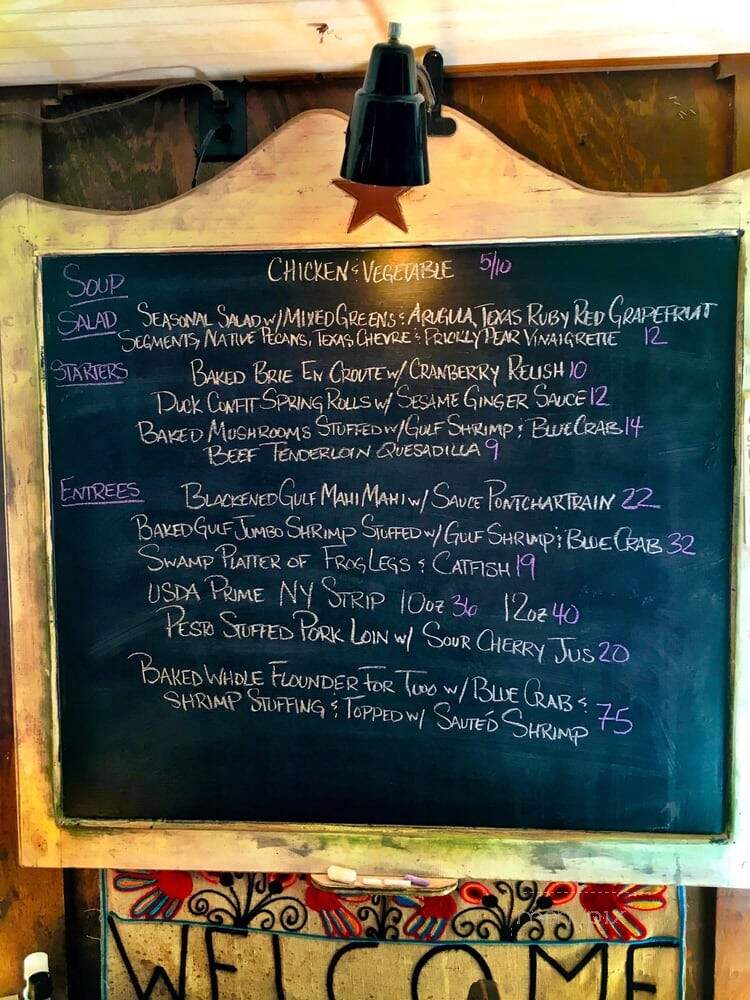 SOUP CHICKEN & VEGETABLE 5/10
SALAD SEASONAL SALAD W/ MIXED GREENS & ARUGULA, TEXAS RUBY RED GRAPEFRUIT
SEGMENTS, NATIVE PECANS, TEXAS CHEVRE & PRICKLY PEAR VINAIGRETTE 12
STARTERS BAKED BRIE EN CROUTE W/ CRANBERRY RELISH 10
DUCK CONFIT SPRING ROLLS W/ SESAME GINGER SAUCE 12
BAKED MUSHROOMS STUFFED W/ GULF SHRIMP & BLUE CRAB 14
BEEF TENDERLOIN QUESADILLA 9
ENTREES BLACKENED GULF MAHI MAHI W/ SAUCE PONTCHARTRAIN 22
BAKED GULF JUMBO SHRIMP STUFFED W/ GULF SHRIMP & BLUE CRAB 32
SWAMP PLATTER OF FROG LEGS & CATFISH 19
USDA PRIME NY STRIP 10oz 36 12oz 40
PESTO STUFFED PORK LOIN W/ SOUR CHERRY JUS 20
BAKED WHOLE FLOUNDER FOR TWO W/ BLUE CRAB &
SHRIMP STUFFING & TOPPED W/ SAUTEÉD SHRIMP 75
WELCOME